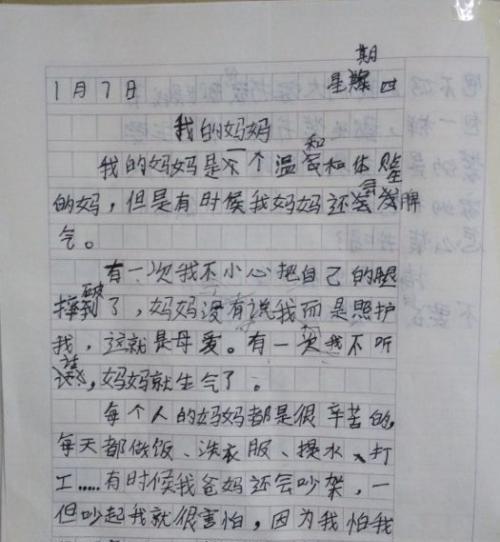 1月7日 星期四
我的妈妈
我的妈妈是一个温和体贴
的妈，但是有时候我妈妈还会发脾
气。
有一次我不小心把自己的腿
摔破了，妈妈没有说我而是照护
我，这就是母爱。有一次我不听
话，妈妈就生气了。
每个人的妈妈都是很辛苦的，
每天都做饭、洗衣服、提水、打
工.....有时候我爸妈还会吵架，一
但吵起我就很害怕，因为我怕我